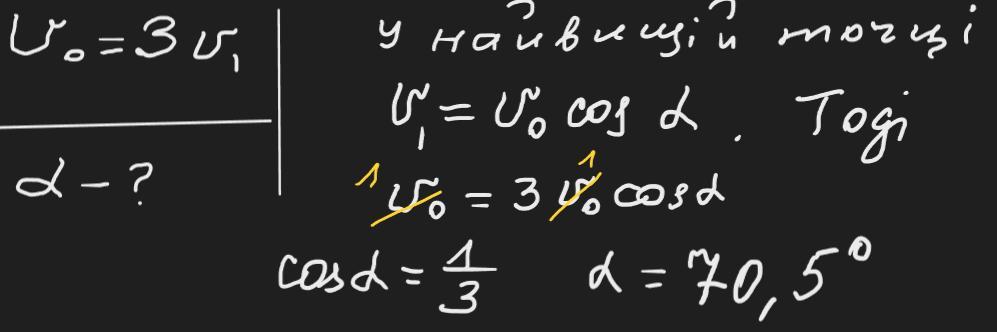 υ₀ = 3υ₁
α – ?
У найвищій точці
υ₁ = υ₀ cos α. Тоді
1 υ₀ = 3 υ₀ 1 cos α
cos α = 1/3 α = 70,5°